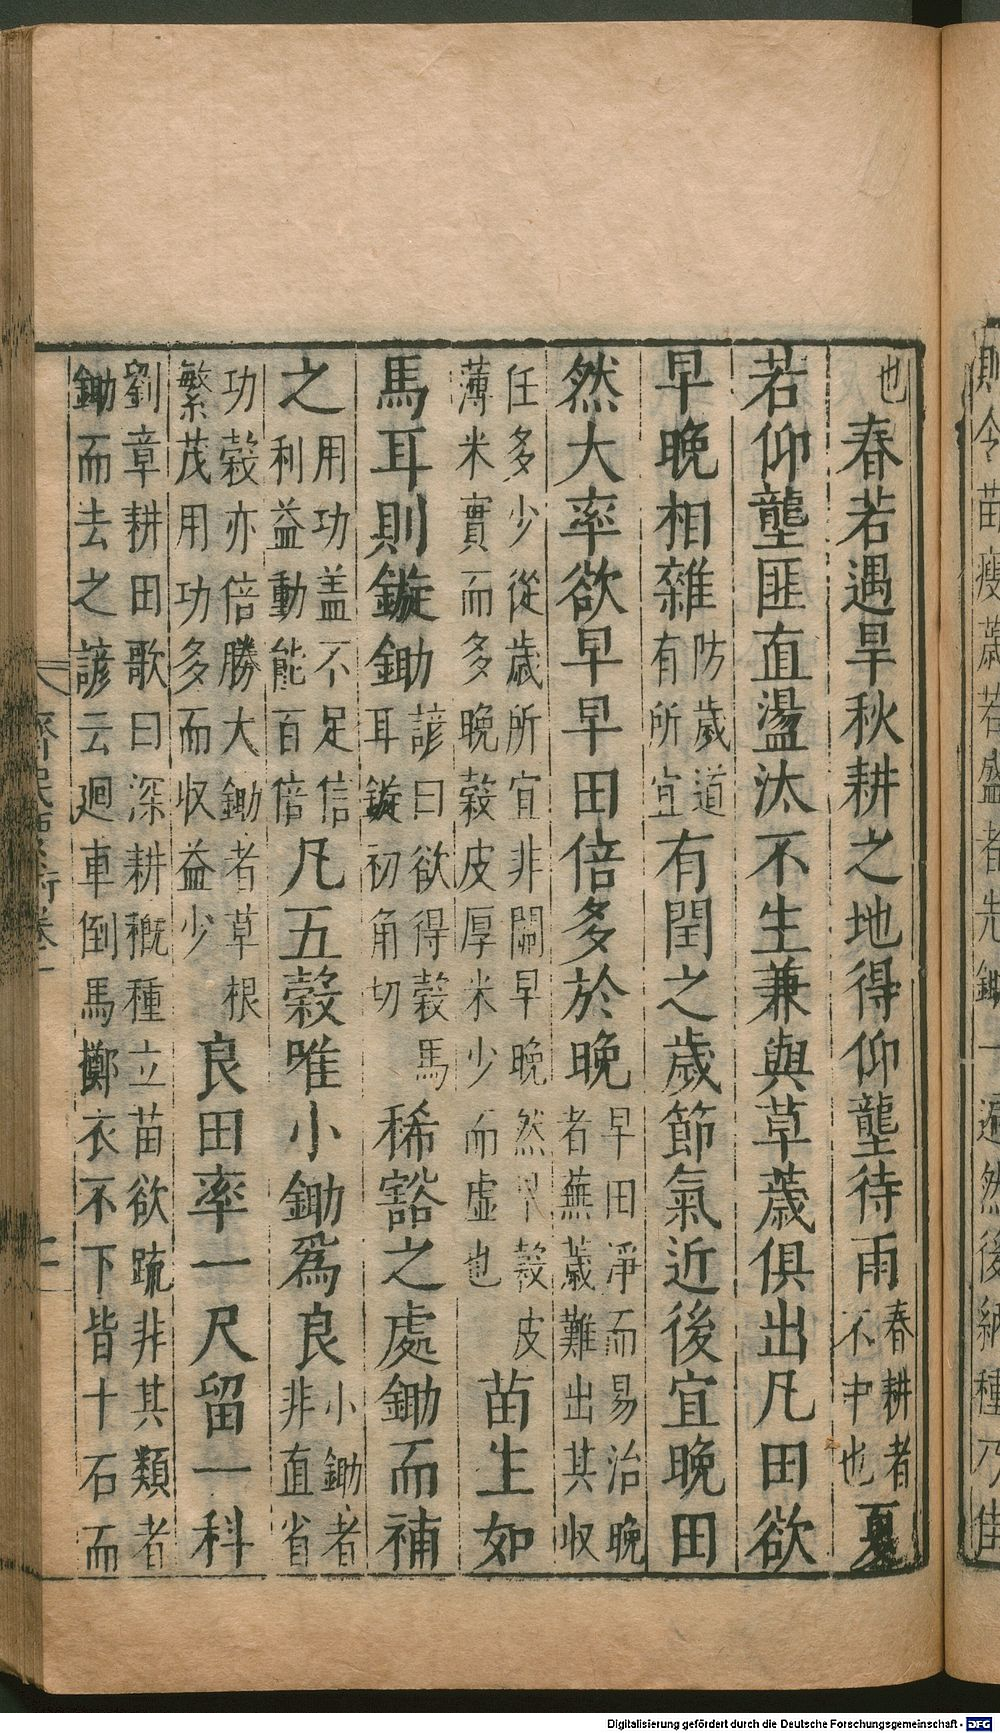 則令苗瘦薉若盛者先鋤一遍然後納種乃佳
也春若遇旱秋耕之地得仰壟待雨春耕者不中也夏
若仰壟匪直盪汰不生兼與草薉俱出凡田欲
早晚相雜防歲道有所宜有閏之歲節氣近後宜晚田
然大率欲早早田倍多於晚早田淨而易治晚者蕪薉難出其収
任多少從歲所宜非關早晚然早穀皮薄米實而多晚穀皮厚米少而虛也苗生如
馬耳則鏇鋤諺曰欲得穀馬耳鏇初角切稀豁之處鋤而補
之用功盖不足信利益動能百倍凡五穀唯小鋤爲良小鋤者非直省
功穀亦倍勝大鋤者草根繁茂用功多而収益少良田率一尺留一科
劉章耕田歌曰深耕穊種立苗欲疏非其類者鋤而去之諺云迴車倒馬擲衣不下皆十石而
齊民要術卷一
Digitalisierung gefördert durch die Deutsche Forschungsgemeinschaft - DFG